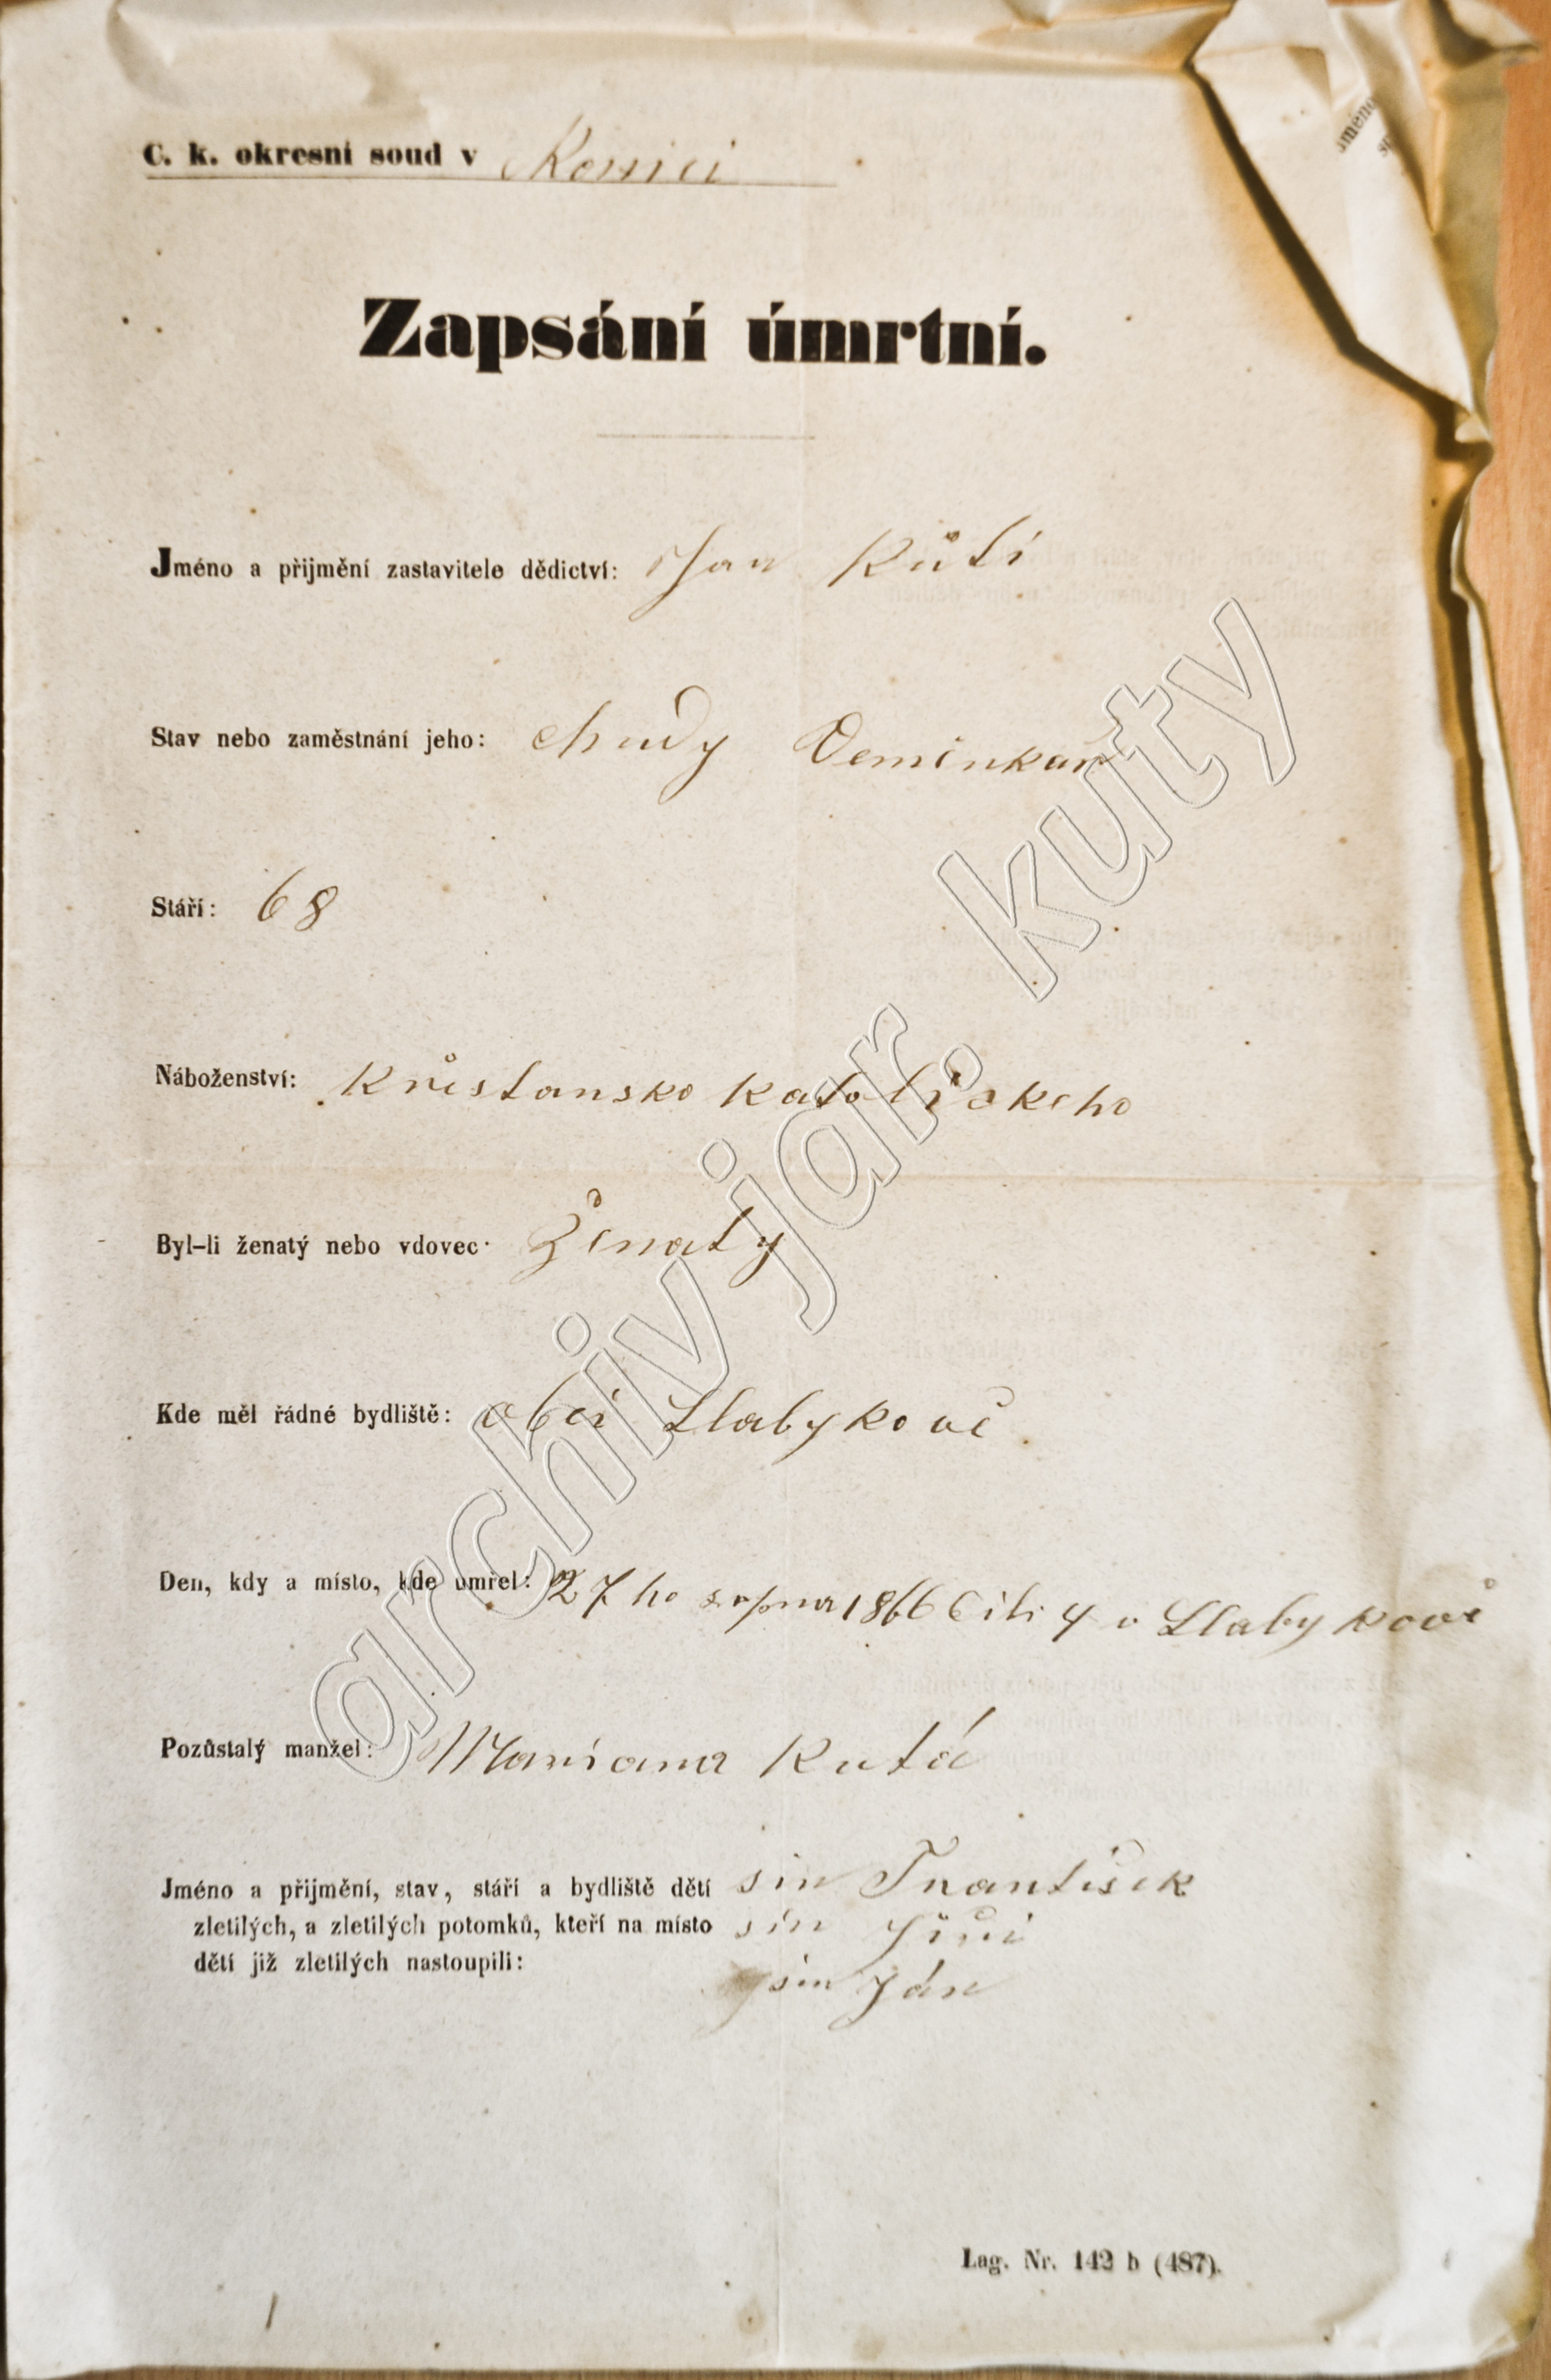 C. k. okresní soud v Konici
Zapsání úmrtní.
Jméno a přijmění zastavitele dědictví: Jan Kůtí
Stav nebo zaměstnání jeho: chudy Deminkař
Stáří: 68
Náboženství: Křistansko katolickeho
Byl-li ženatý nebo vdovec: Ženaty
Kde měl řádné bydliště: obci Llabykově
Den, kdy a místo, kde umřel: 27ho srpna 1866 v Llabykově
Pozůstalý manžel: Mariana Kutá
Jméno a přijmění, stav, stáří a bydliště dětí sin František
zletilých, a zletilých potomků, kteří na místo sin Jiři
dětí již zletilých nastoupili: sin Ján
Lag. Nr. 142 b (487).
archiv jar. kuty